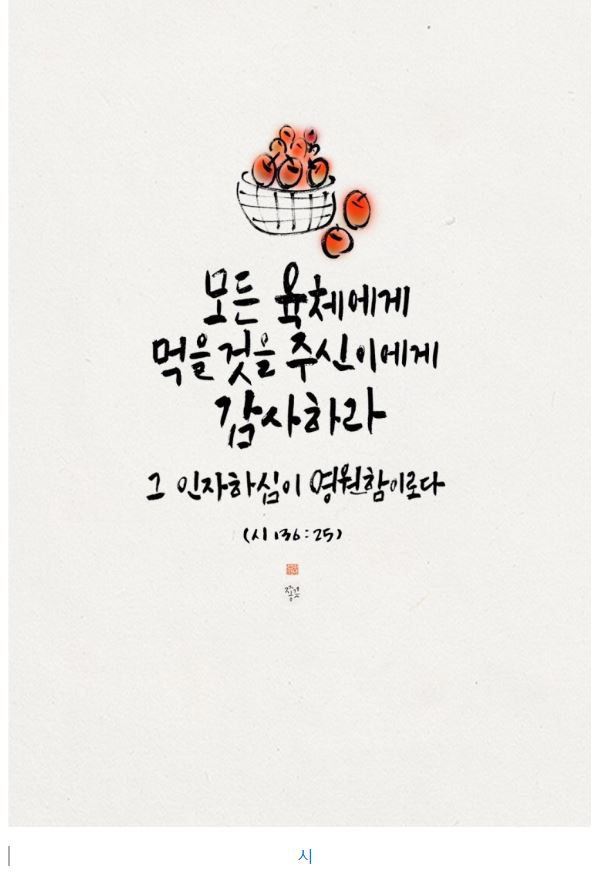 모든 육체에게
먹을 것을 주신 이에게
감사하라
그 인자하심이 영원함이로다
(시 136:25)
시